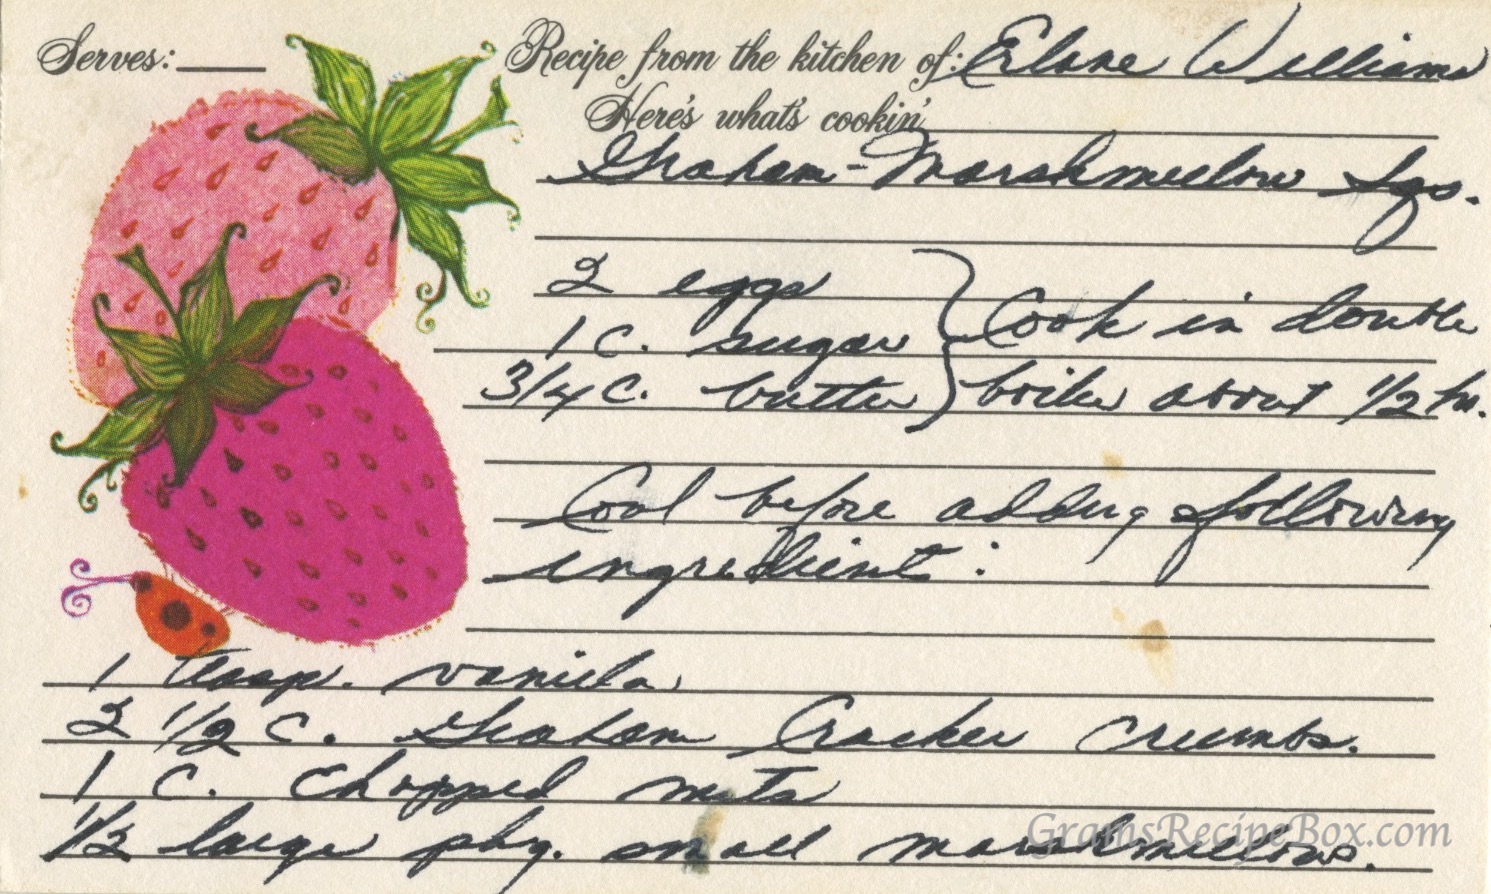 Serves:
Recipe from the kitchen of: Elane Williams
Here's what's cookin'
Graham-Marshmellow Sqs.
2 eggs
1 C. sugar
3/4 C. butter
Cook in double
boiler about 1/2 hr.
Cool before adding following
ingredient:
1 teasp. vanilla
2 1/2 C. Graham Cracker crumbs.
1 C. chopped nuts
1/2 large pkg. small marshmellows.
GramsRecipeBox.com